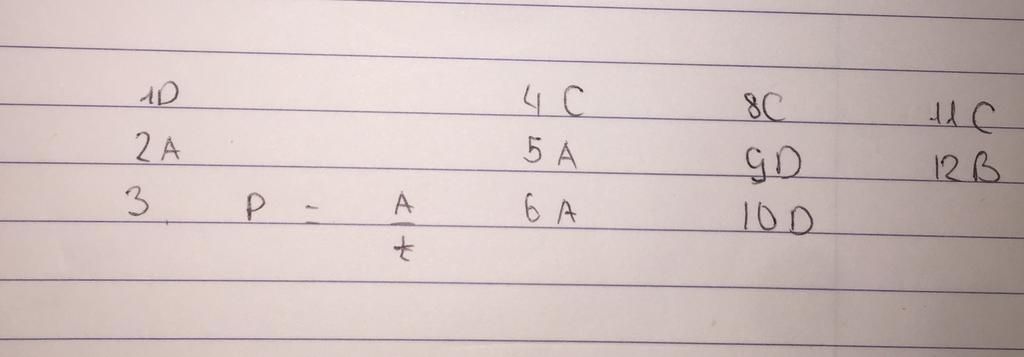 1D
2A
3. P = A/t
4 C
5 A
6 A
8C
9D
10 D
11 C
12 B